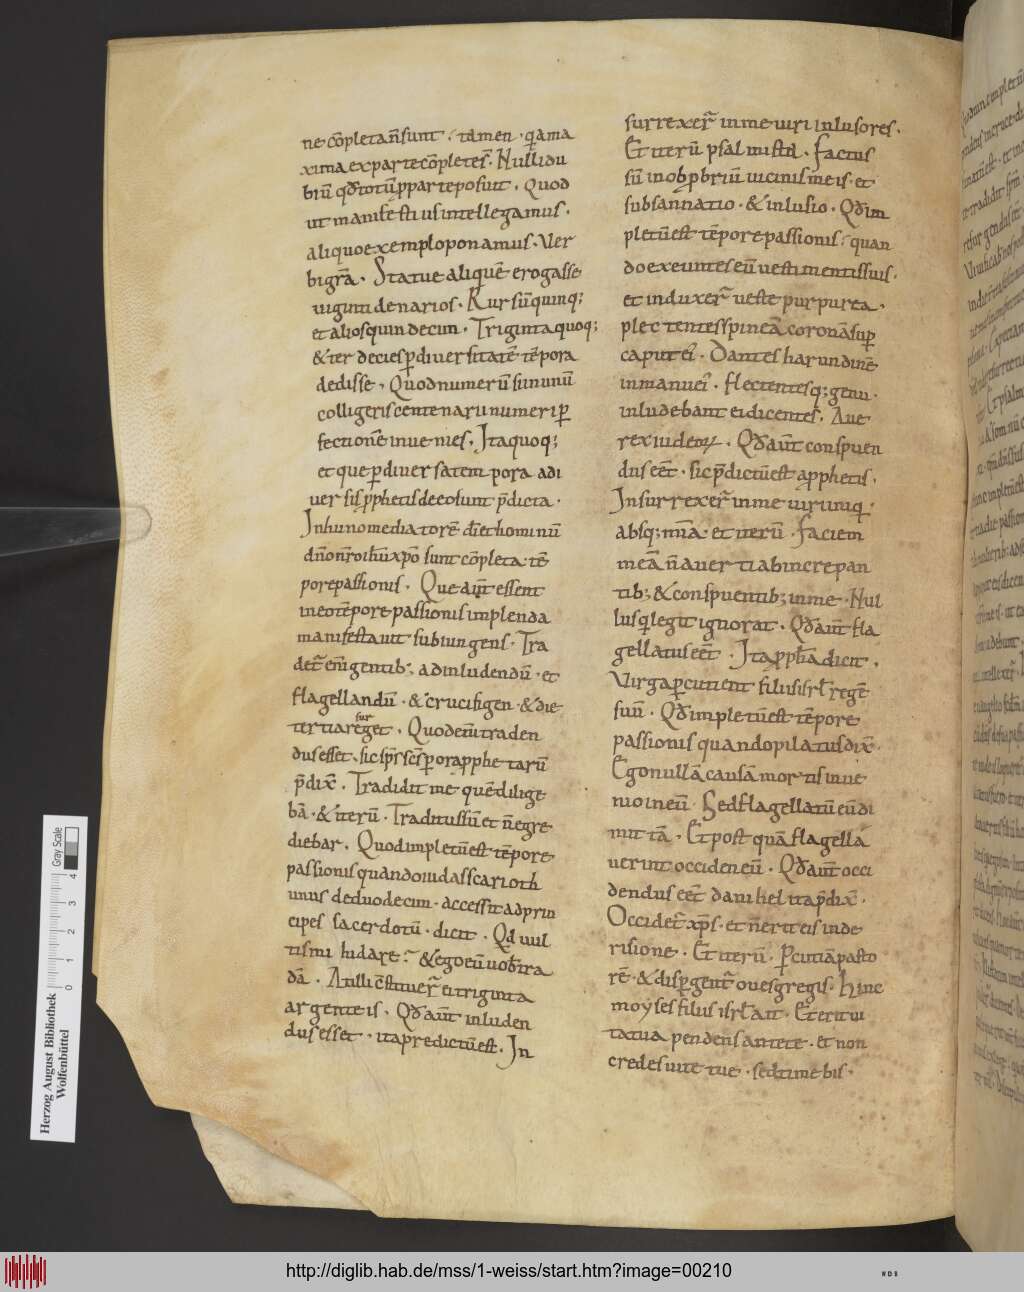 ne cōpletan̄sunt. tam̄en. q̄ama
xima exparte cōpletes̄. Nulli du
biū qđ totū p parte posuit. Quod
ut manifestius intellegamus.
aliquo exemplo ponamus. Ver
bigr̄a. Statue aliquē erogasse
uiginti denarios. Rursū quinq;
et alios quindecim. Triginta quoq;
& ter decies p diuersitatē tēpora
dedisse, Quod numerū si in unū
colligeris centenarii numeri p
fectionē inuenies. Ita quoq;
et que p diuersa tempora adi
uersis pphetis de eo sunt p̄dicta.
In huno mediatorē dī et hominū
dn̄on̄roih̄u xp̄o sunt cōpleta. tē
pore passionis. Que aūt essent
in eo tēpore passionis implenda
manifestauit subiungens. Tra
det̄ eni gentib; ad inludendū. et
flagellandū. & crucifigen. & die
tertia resurget. Quod eni traden
dus esset. sic sp̄s sc̄s p ora pphetarū
p̄dix̄. Tradidit me quē dilige
bā. & iterū. Traditus sū et n̄ egre
diebar. Quod impletū est tēpore
passionis quando iudas scarioth
unus de duodecim. accessit ad prin
cipes sacerdotū. dicit. Qd uul
tis mi hi dare. & ego eū uob̄ tra
dā. At illi c̄stituer̄ ei triginta
argenteis. Qđ aūt inluden
dus esset. ita predictū est. In
surrexer̄ in me uiri inlusores.
Et iterū psalmista. Factus
sū in obpbriū uicinis meis. et
subsannatio. & inlusio. Qđ im
pletū est tēpore passionis. quan
do exeuntes eū uestimentis suis.
et induxer̄ ueste purpurea.
plectentes spineā coronā sup
caput ei'. Dantes harundinē
in manu ei'. flectentesq; genu.
inludebant ei dicentes. Aue
rex iudeoꝝ. Qđ aūt conspuen
dus eēt. sic p̄dictū est a pphetis.
Insurrexer̄ in me uiri iniq.
absq; mīa. et iterū. Faciem
meā n̄ auerti ab increpan
tib; & conspuentib; in me. Nul
lus q̄ legit ignorat. Qđ aūt fla
gellatus eēt. Ita pph̄a dicit.
Virga pcutient filius isrl̄ regē
suū. Qđ impletū est tēpore
passionis quando pilatus dix̄.
Ego nullā causā mortis inue
nio in eū. Sed flagellatū eū di
mittā. Et post quā flagella
uerint occident eū. Qđ aūt occi
dendus eēt danihel ita p̄dix̄.
Occidet̄ xp̄s. et n̄ erit eis in de
risione. Et iterū. Pcutiā pasto
rē. & dispgent̄ oues gregis. Hinc
moyses filius isrl̄ ait. Et erit ui
ta tua pendens ante te. et non
credes uite tue. sed timebis.
Herzog August Bibliothek
Wolfenbüttel
Gray Scale
0 1 2 3 4
http://diglib.hab.de/mss/1-weiss/start.htm?image=00210